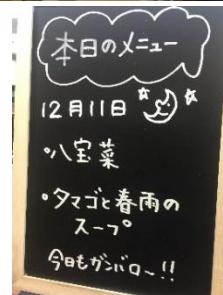 本日のメニュー
12月11日
・八宝菜
・タマゴと春雨の
スープ
今日もガンバロ〜!!